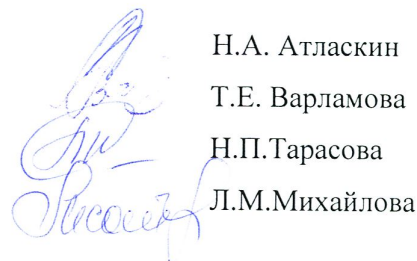 Н.А. Атласкин
Т.Е. Варламова
Н.П.Тарасова
Л.М.Михайлова